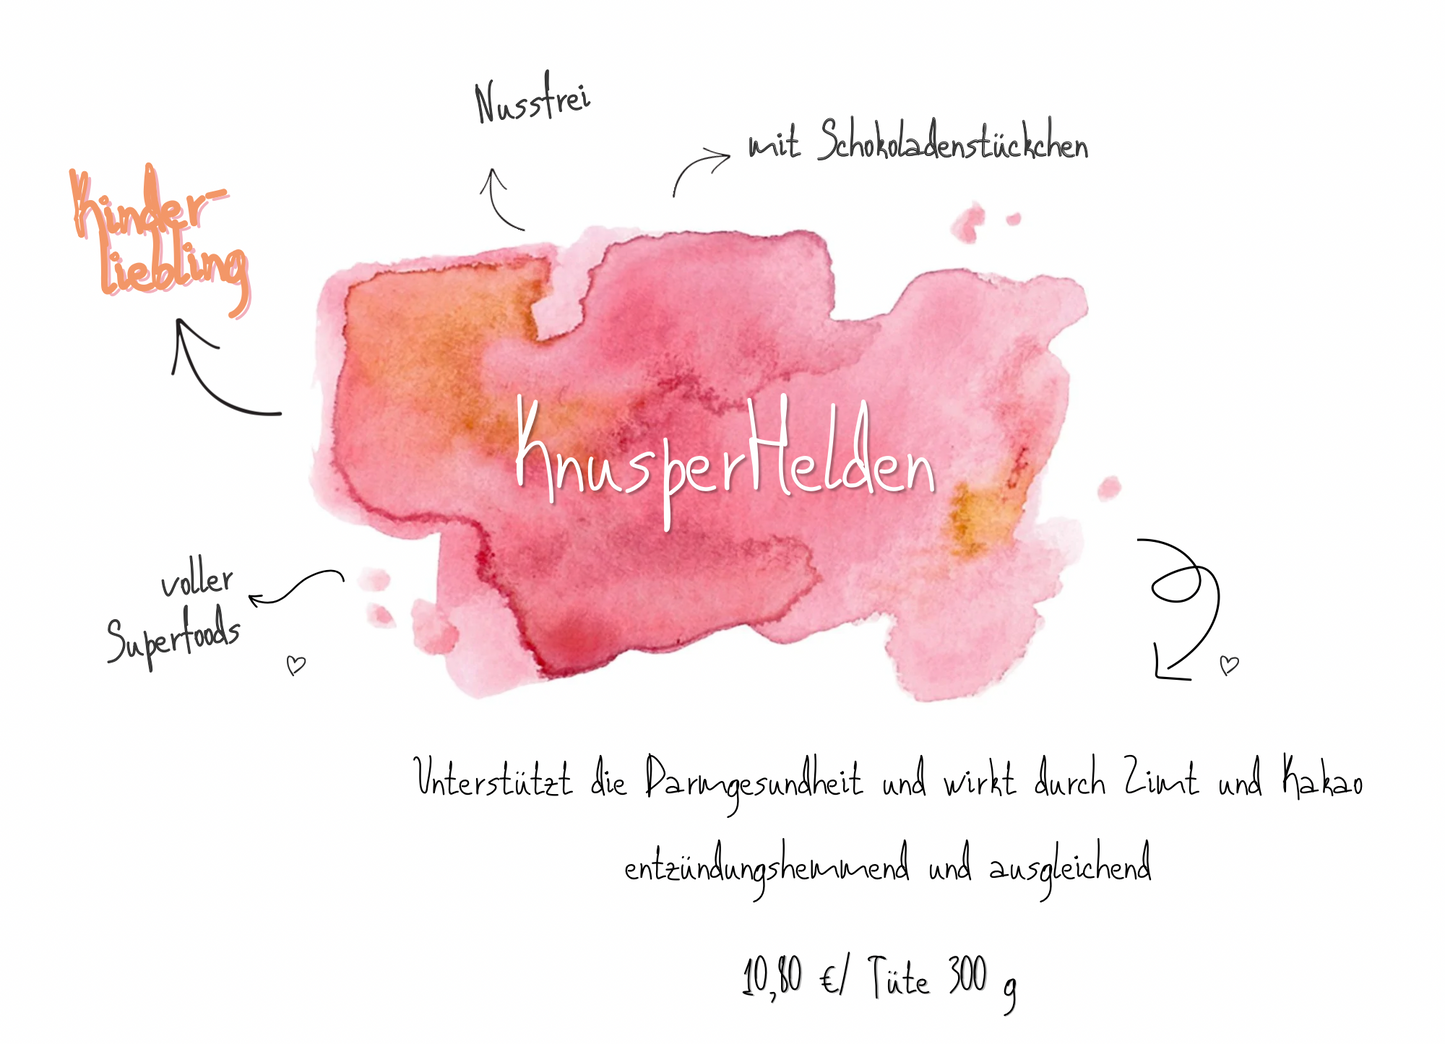 Nussfrei
mit Schokoladenstückchen
Kinder-
liebling
KnusperHelden
voller
Superfoods
Unterstützt die Darmgesundheit und wirkt durch Zimt und Kakao
entzündungshemmend und ausgleichend
10,80 €/ Tüte 300 g